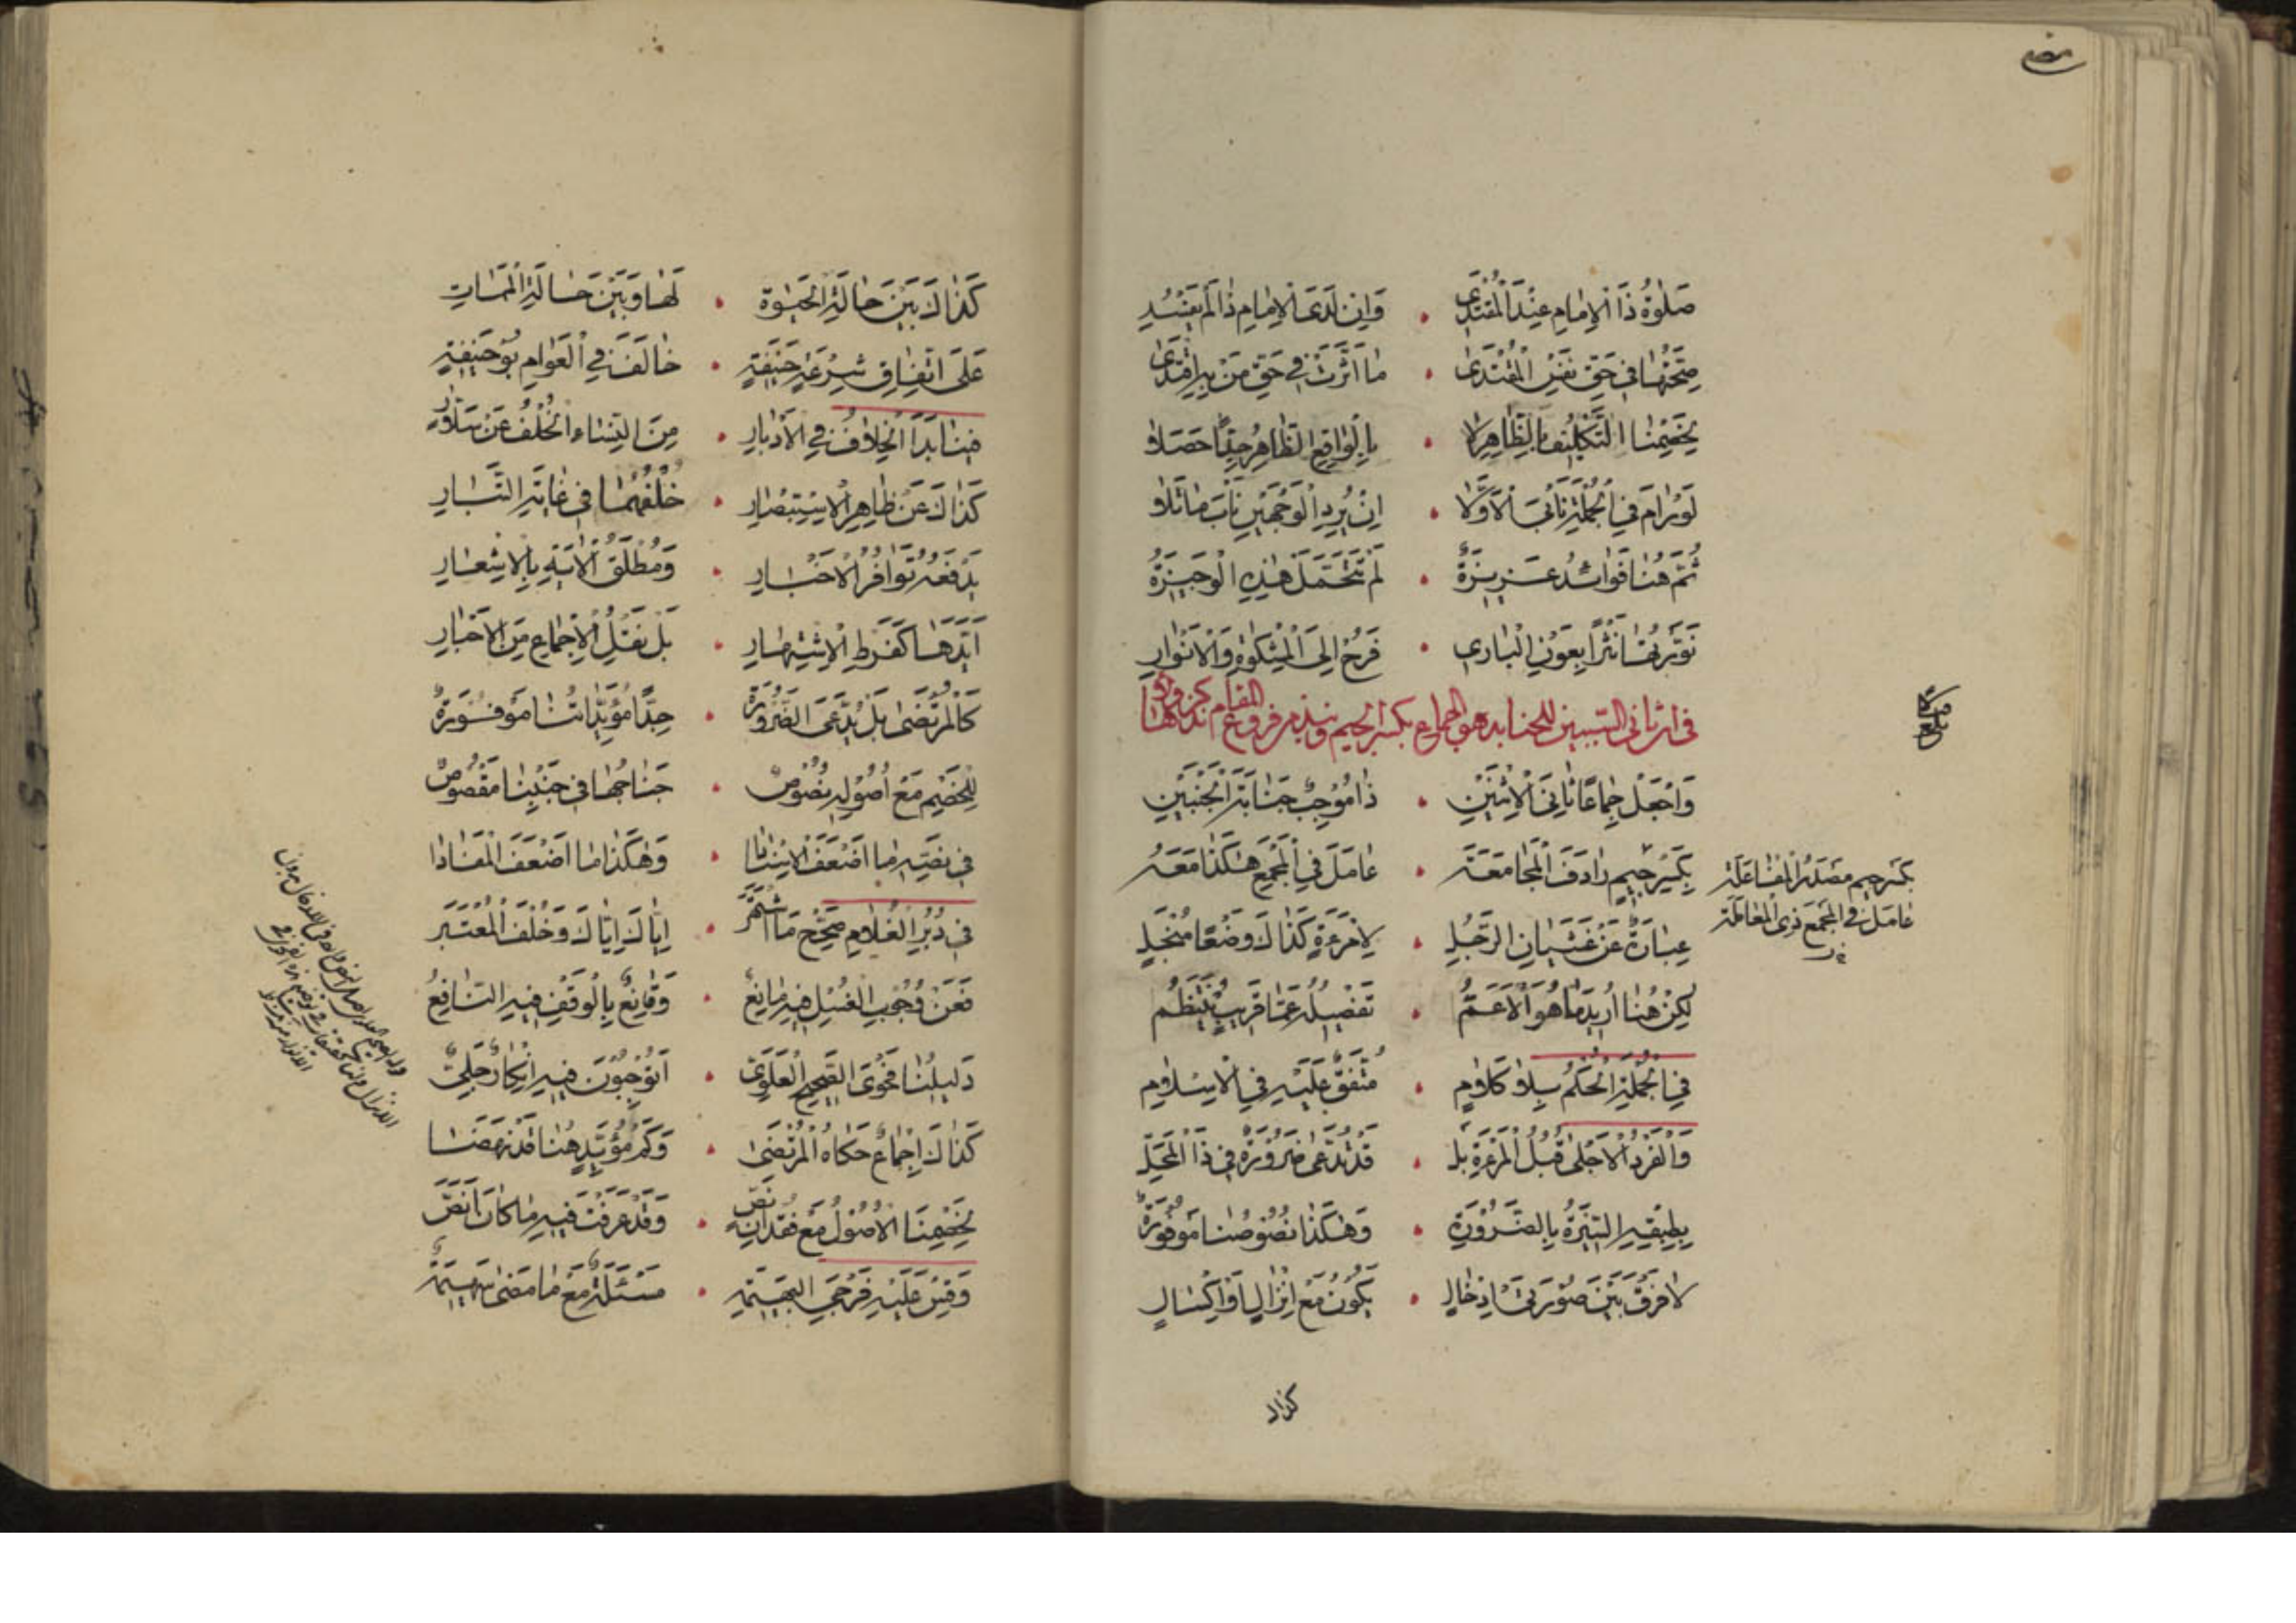 صَلٰوةُ ذَا الْاِمٰامِ عِنْدَ الْمُقْتَدِي . وَاِنْ لَدَى الْاِمٰامِ ذٰا لَمْ يَفْسُدِ
صِحَّتُهٰا فِي حَقِّ نَفْسِ الْمُقْتَدىٰ . مٰا اَثَّرَتْ فِي حَقِّ مَنْ بِهِ اقْتَدىٰ
لِخَصْمِنَا التَّكْلِيفُ بِالظّٰاهِرِ لاٰ . بِالْوٰاقِعِ الظّٰاهِرُ حَقًّا حَصَلاٰ
لَوْ رٰامَ فِي الْجُمْلَةِ نَأْبَى الْاَوَّلاٰ . اِنْ يُرِدِ الْوَجْهَيْنِ نَأْبَ مٰا تَلاٰ
ثُمَّ هُنٰا فَوٰائِدُ عَزِيزَةٌ . لَمْ تَتَحَمَّلْ هٰذِهِ الْوَجِيزَةُ
نَوَّرْتُهٰا نَثْرًا بِعَوْنِ الْبٰارِي . فَرُحْ اِلَى الْمِشْكٰوةِ وَالْاَنْوٰارِ
في ان ثاني السببين للجنابة هو الجماع بكسر الجيم ونبذ من فروع المقام
وَاجْعَلْ جِمٰاعًا ثٰانِيَ الْاِثْنَيْنِ . ذٰا مُوجِبٌ جَنٰابَةَ الْجَنْبَيْنِ
بِكَسْرِ جِيمٍ رٰادَفَ الْمُجٰامَعَة . عٰامَلَ فِي الْمَجْمَعِ هٰكَذٰا مَعَهُ
بكسر جيم مصدر المفاعلة
عامل في المجمع ذي المعاملة
عِبٰارَةٌ عَنْ غَشَيٰانِ الرَّجُلِ . لِامْرَءَةٍ كَذٰاكَ وَضْعًا مُنْجَلِ
لٰكِنْ هُنٰا اُرِيدَ مٰا هُوَ الْاَعَمُّ . تَفْصِيلُهُ عَمّٰا قَرِيبٍ يَنْتَظِمُ
فِي الْجُمْلَةِ الْحُكْمُ بِلاٰ كَلاٰمٍ . مُتَّفَقٌ عَلَيْهِ فِي الْاِسْلاٰمِ
وَالْفَرْدُ الْاَجْلىٰ قُبُلُ الْمَرْءَةِ بَلْ . قَدْ تُدَّعىٰ ضَرُورَةٌ فِي ذَا الْمَحَلِّ
بِطِبْقِهِ السِّيرَةُ بِالضَّرُورَةِ . وَهٰكَذٰا نُصُوصُنٰا مَوْفُورَةٌ
لاٰ فَرْقَ بَيْنَ صُورَتَيْ اِدْخٰالٍ . يَكُونُ مَعْ اِنْزٰالٍ اَوْ اِكْسٰالٍ
كذاك
كَذٰاكَ بَيْنَ حٰالَةِ الْحَيٰوة . لَهٰا وَبَيْنَ حٰالَةِ الْمَمٰاتِ
عَلَى اتِّفٰاقِ شِرْعَةٍ حَنِيفَةٍ . خٰالَفَنٰا فِي الْعَوٰامِ بُو حَنِيفَةٍ
فِينٰا بَدَا الْخِلاٰفُ فِي الْاَدْبٰارِ . مِنَ النِّسٰاءِ الْخُلْفُ عَنْ سَلاٰر
كَذٰاكَ عَنْ ظٰاهِرِ الْاِسْتِبْصٰارِ . خُلْفُهُمٰا فِي غٰايَةِ التَّبٰارِ
يَدْفَعُهُ تَوٰافُرُ الْاَخْبٰارِ . وَمُطْلَقُ الْاٰيَةِ بِالْاِشْعٰارِ
اَيَّدَهٰا كَفَرْطِ الْاِشْتِهٰارِ . بَلْ نَقْلُ الْاِجْمٰاعِ مِنَ الْاَخْيٰارِ
كَالْمُرْتَضىٰ بَلْ يَدَّعِي الضَّرُورَة . جِدًّا مُؤَيِّدٰاتُنٰا مَوْفُورَةٌ
لِلْخَصْمِ مَعْ اُصُولِهِ نُصُوصٌ . جَنٰاحُهٰا فِي جَنْبِنٰا مَقْصُوصٌ
فِي نَصِّهِ مٰا اَضْعَفَ الْاِسْنٰادٰا . وَهٰكَذٰا مٰا اَضْعَفَ الْمُفٰادٰا
فِي دُبُرِ الْغُلاٰمِ صَحِّحْ مَا اشْتَهَرَ . اِيّٰاكَ اِيّٰاكَ وَخُلْفَ الْمُعْتَبَرِ
فَعَنْ وُجُوبِ الْغُسْلِ فِيهِ مٰانِعٌ . وَقٰانِعٌ بِالْوَقْفِ فِيهِ النّٰافِعُ
دَلِيلُنٰا فَحْوَى الصَّحِيحِ الْعَلَوِيّ . اَتُوجِبُونَ فِيهِ اِنْكٰارٌ جَلِيٌّ
كَذٰاكَ اِجْمٰاعٌ حَكٰاهُ الْمُرْتَضىٰ . وَكَمْ مُؤَيِّدٍ هُنٰا قَدْ نَهَضٰا
لِخَصْمِنَا الْاُصُولُ مَعْ فِقْدٰانِ نَصّ . وَقَدْ عَرَفْتَ فِيهِ مٰا كٰانَ اَنَصّ
وَقِسْ عَلَيْهِ فَرْجَيِ الْبَهِيمَةِ . مَسْئَلَةٌ مَعْ مٰا مَضىٰ سَهِيمَةٌ